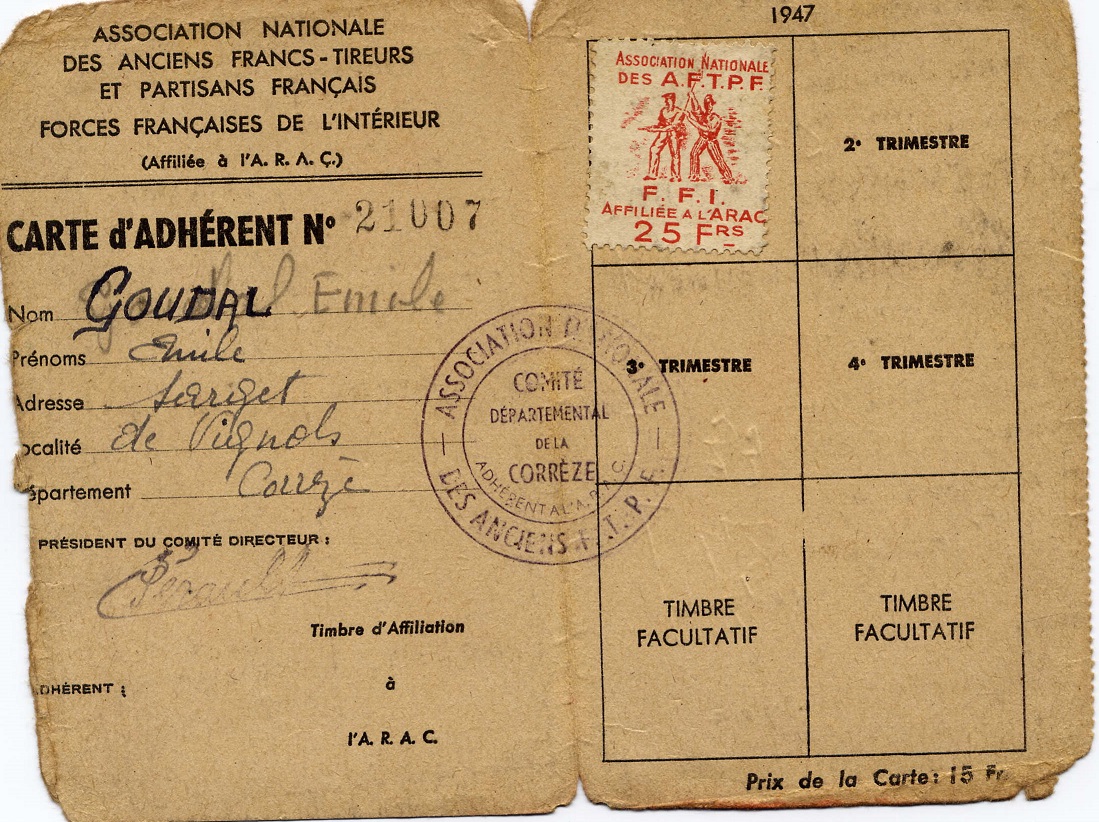 ASSOCIATION NATIONALE
DES ANCIENS FRANCS-TIREURS
ET PARTISANS FRANÇAIS
FORCES FRANÇAISES DE L'INTÉRIEUR
(Affiliée à l'A. R. A. Ç.)
CARTE d'ADHÉRENT Nº 21007
Nom GOUDAL Emile
Prénoms Emile
Adresse Sarget
ocalité de Vignols
épartement Corrèze
PRÉSIDENT DU COMITÉ DIRECTEUR :
Timbre d'Affiliation
DHÉRENT :
à
l'A. R. A. C.
ASSOCIATION NATIONALE
DES ANCIENS F. T. P. F.
COMITÉ
DÉPARTEMENTAL
DE LA
CORRÈZE
ADHÉRENT A L'A. R. A. C.
1947
ASSOCIATION NATIONALE
DES A.F.T.P.F.
F. F. I.
AFFILIÉE A L'ARAC
25 FRS
2e TRIMESTRE
3e TRIMESTRE
4e TRIMESTRE
TIMBRE
FACULTATIF
TIMBRE
FACULTATIF
Prix de la Carte: 15 Fr